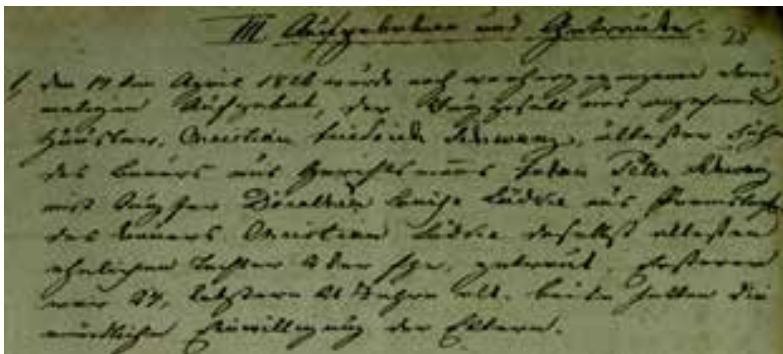 III. Aufgebotene und Getraute. 28
1, den 17ten April 1826 wurde nach vorhergegangenem drei
maligen Aufgebot, der Junggesell und angehende
Häusler, Christian Friedrich Schwarz, ältester Sohn
des Bauers und Gerichtsmanns Johan Peter Schwarz
mit Jungfer Dorothea Louise Lüdke aus
des Bauers Christian Lüdke daselbst ältesten
ehelichen Tochter getraut, Ersterer
war 27, letztere 21 Jahre alt. beide hatten die
mündliche Einwilligung der Eltern.